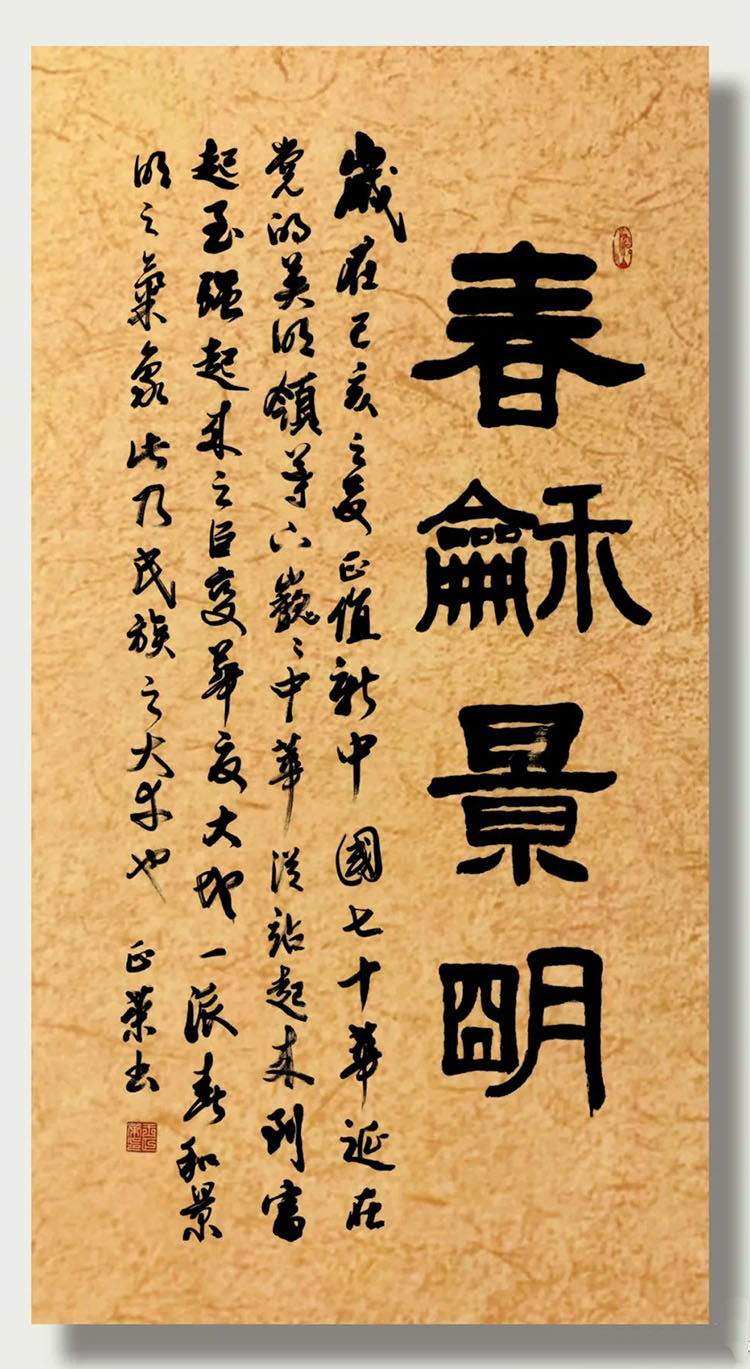 春龢景明
歲在己亥之夏正值新中國七十華誕在
党的英明領导下巍〻中華從站起来到富
起至强起来之巨變華夏大地一派春和景
明之氣象此乃民族之大幸也
正葉书